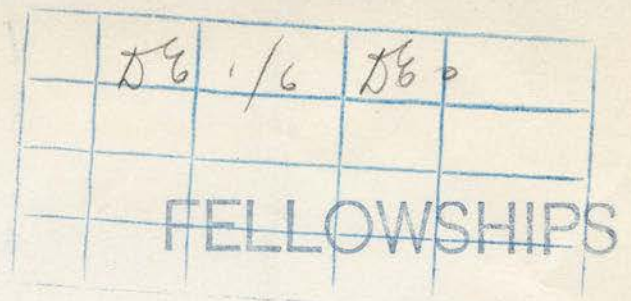 DE 1/6 DE
FELLOWSHIPS